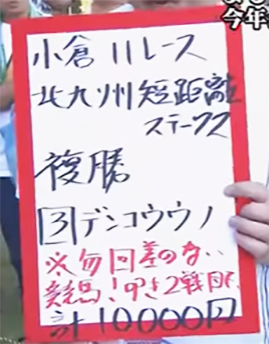 今年
小倉 11レース
北九州短距離
ステークス
複勝
3 デンコウウノ
※毎回差のない
競馬!叩き2戦目
計10000円